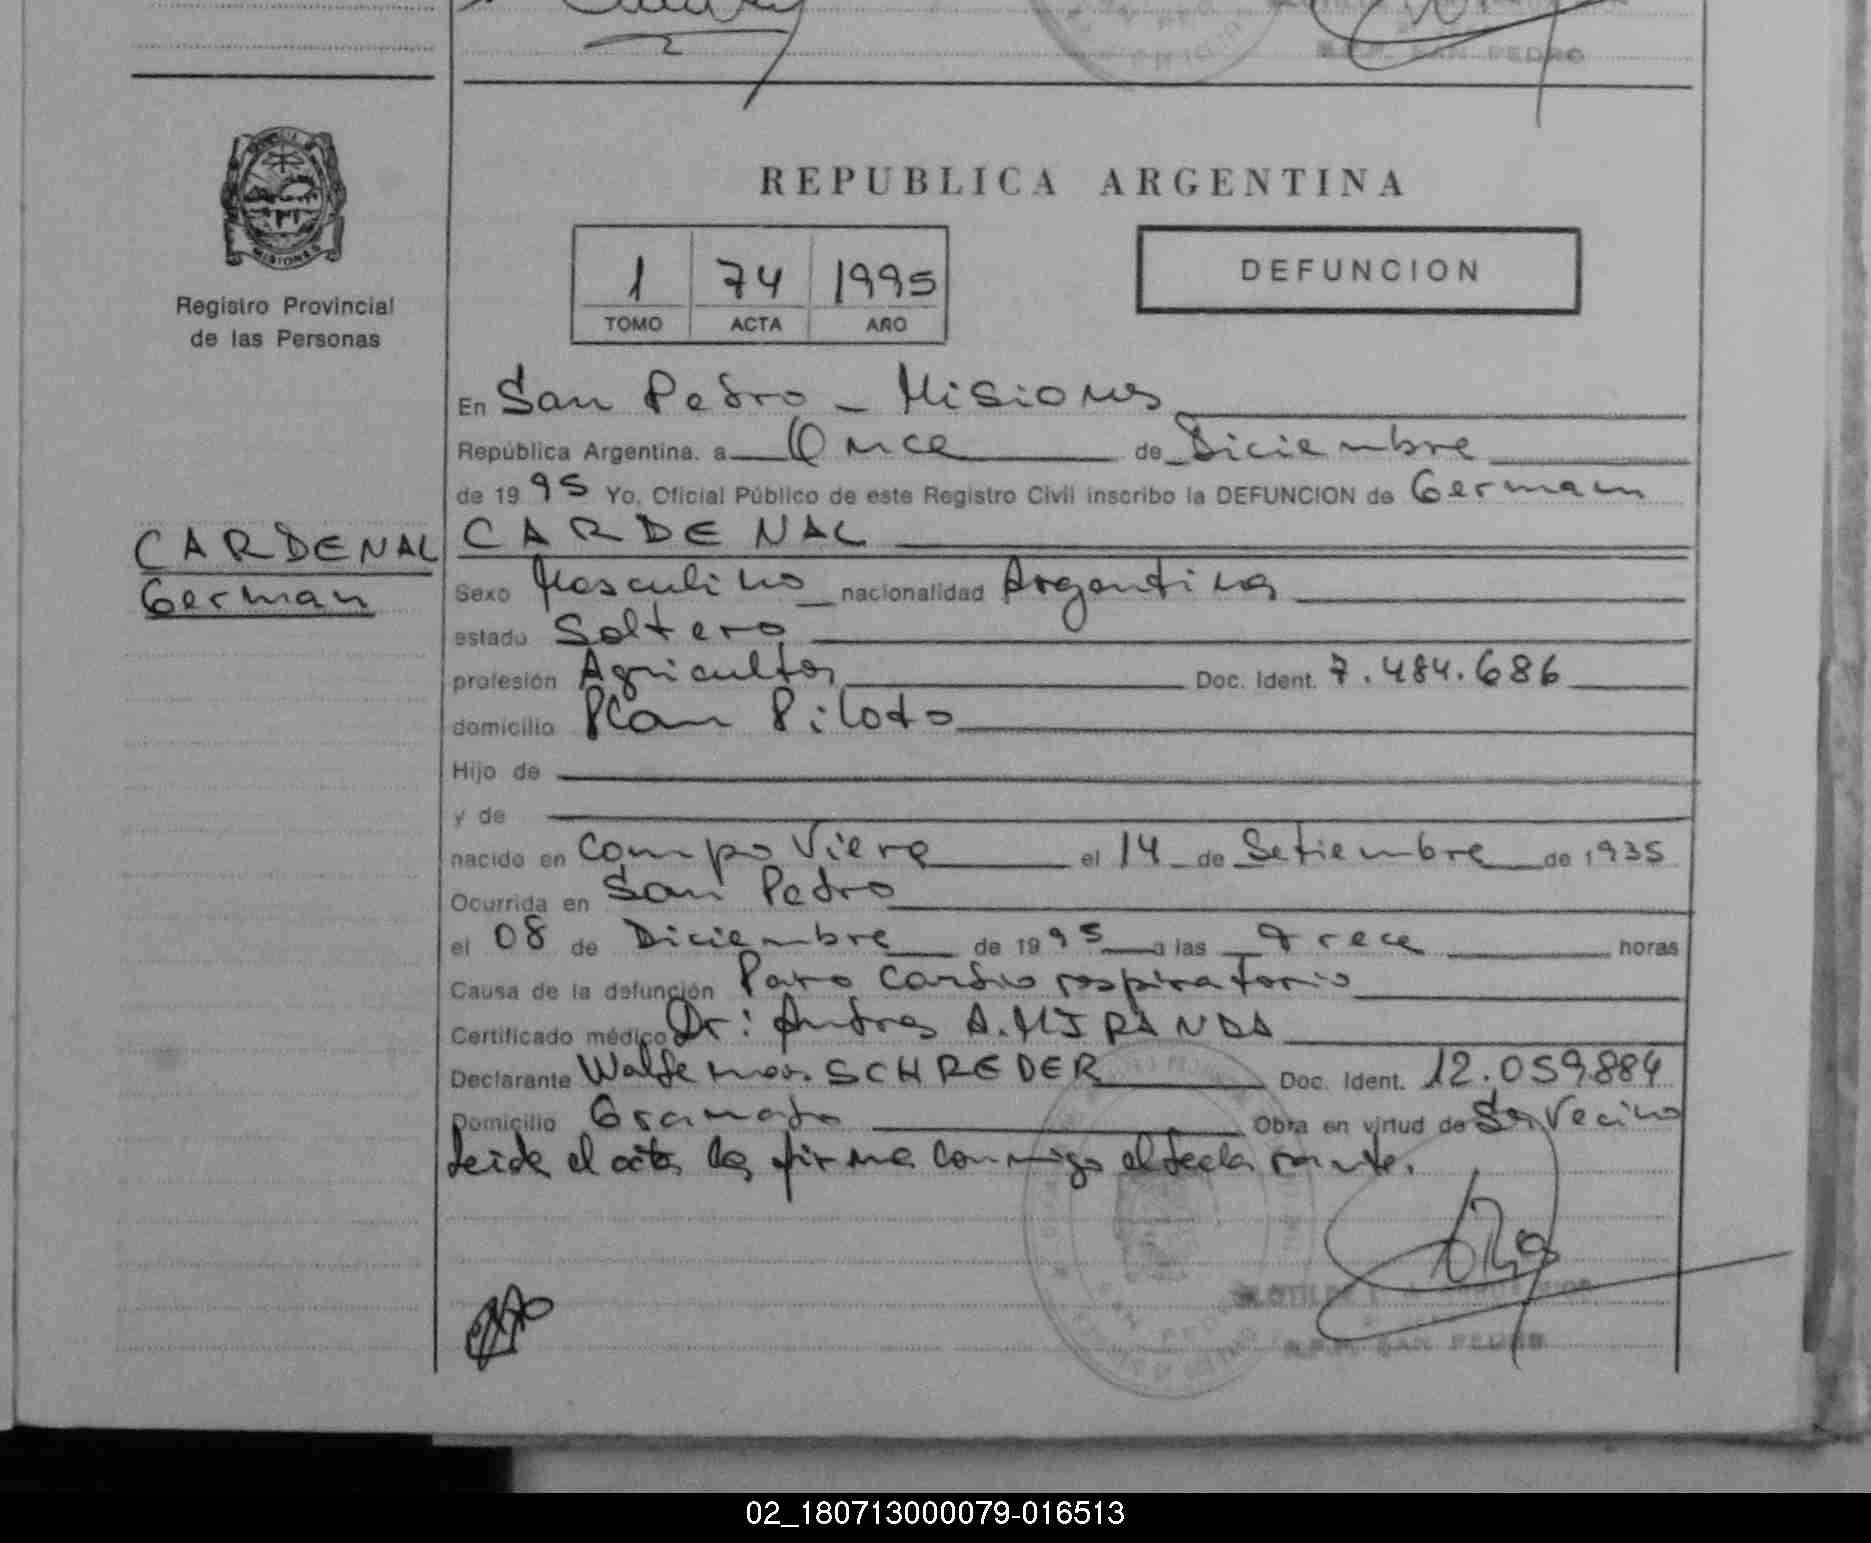 R.P.P. SAN PEDRO
PROVINCIA DE
MISIONES
Registro Provincial
de las Personas
REPUBLICA ARGENTINA
1 74 1995
TOMO ACTA AÑO
DEFUNCION
En San Pedro - Misiones
República Argentina. a Once de Diciembre
de 1995 Yo, Oficial Público de este Registro Civil inscribo la DEFUNCION de German
CARDENAL
CARDENAL
German
Sexo Masculino nacionalidad Argentina
estado Soltero
profesión Agricultor Doc. Ident. 7.484.686
domicilio Plan Piloto
Hijo de
y de
nacido en Campo Viera el 14 de Setiembre de 1935
Ocurrida en San Pedro
el 08 de Diciembre de 1995 a las trece horas
Causa de la defunción Paro Cardio respiratorio
Certificado médico Dr: Andres A. MIRANDA
Declarante Waldemar. SCHREDER Doc. Ident. 12.059.884
Domicilio Gramado Obra en virtud de Ser Vecino
Leida el acta la firma conmigo el declarante.
R.P.P. SAN PEDRO
02_180713000079-016513